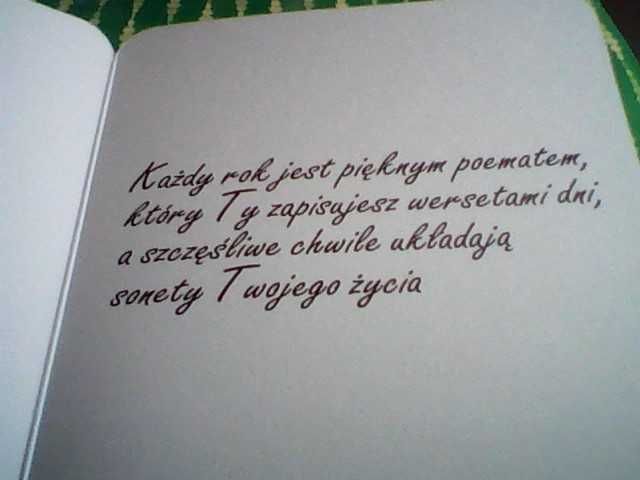 Każdy rok jest pięknym poematem,
który Ty zapisujesz wersetami dni,
a szczęśliwe chwile układają
sonety Twojego życia